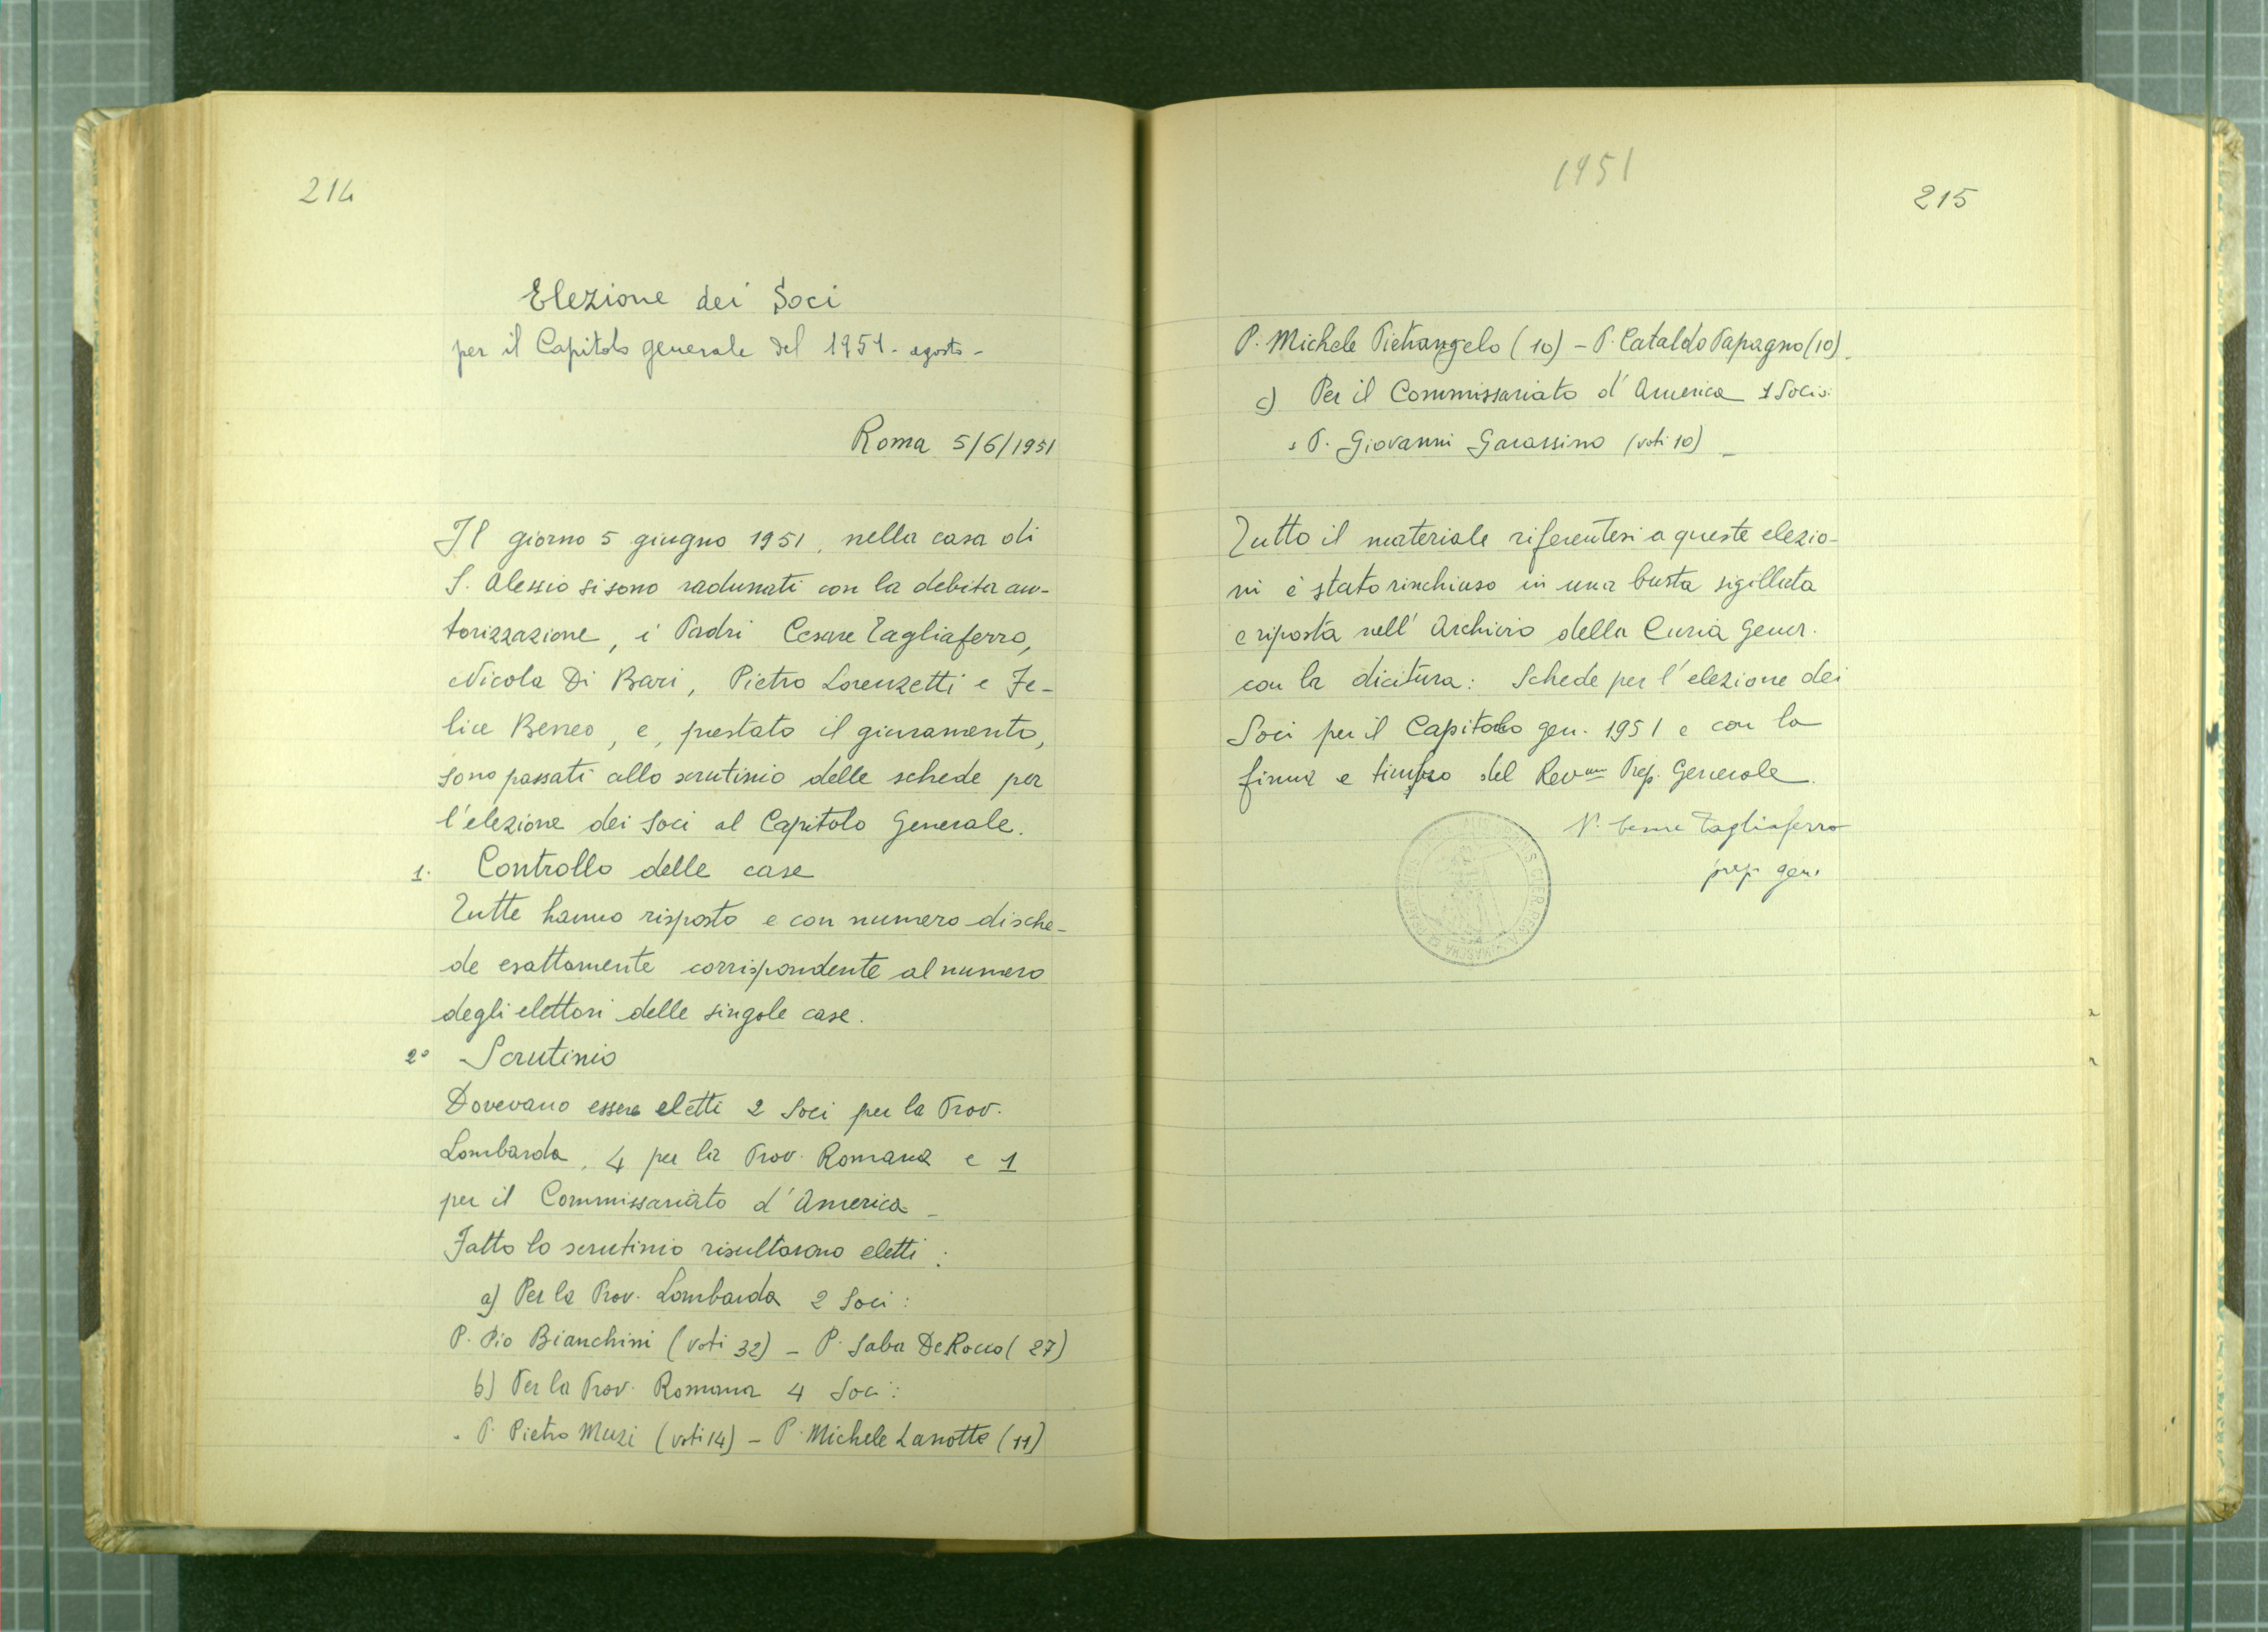 214
Elezione dei Soci
per il Capitolo generale del 1951 - agosto -
Roma 5/6/1951
Il giorno 5 giugno 1951, nella casa di
S. Alessio si sono radunati con la debita au-
torizzazione, i Padri Cesare Tagliaferro,
Nicola Di Bari, Pietro Lorenzetti e Fe-
lice Beneo, e, prestato il giuramento,
sono passati allo scrutinio delle schede per
l'elezione dei Soci al Capitolo Generale.
1. Controllo delle case
Tutte hanno risposto e con numero di sche-
de esattamente corrispondente al numero
degli elettori delle singole case.
2° Scrutinio
Dovevano essere eletti 2 Soci per la Prov.
Lombarda, 4 per la Prov. Romana e 1
per il Commissariato d'America -
Fatto lo scrutinio risultarono eletti:
a) Per la Prov. Lombarda 2 Soci:
P. Pio Bianchini (voti 32) - P. Saba De Rocco (27)
b) Per la Prov. Romana 4 Soci:
P. Pietro Muzi (voti 14) - P. Michele Lanotte (11)
1951
215
P. Michele Pietrangelo (10) - P. Cataldo Papagno (10).
c) Per il Commissariato d'America 1 Socio:
P. Giovanni Garassino (voti 10) -
Tutto il materiale riferentesi a queste elezio-
ni è stato rinchiuso in una busta sigillata
e riposta nell'Archivio della Curia Gener.
con la dicitura: Schede per l'elezione dei
Soci per il Capitolo gen. 1951 e con la
firma e timbro del Rev.mo Prep. Generale.
P. Cesare Tagliaferro
prep. gen.